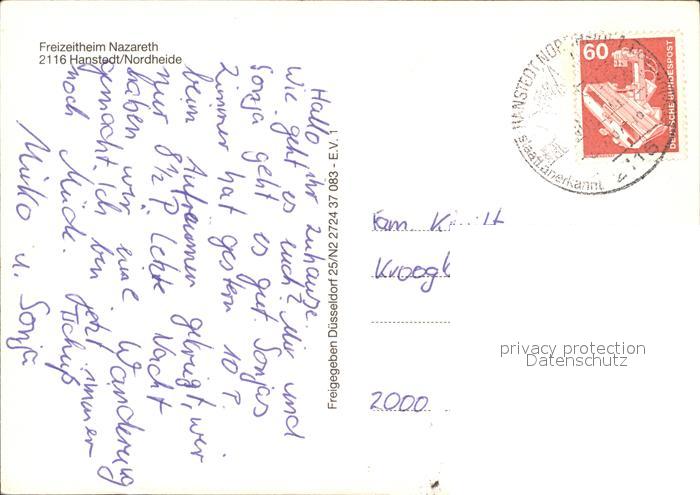 Freizeitheim Nazareth
2116 Hanstedt/Nordheide
Hallo ihr zuhause.
Wie geht es euch? Mir und
Sonja geht es gut. Sonjas
Zimmer hat gestern 10 P.
beim Aufräumen gekriegt, wir
nur 8½ P. Letzte Nacht
haben wir eine Wanderung
gemacht. Ich bin jetzt immer
noch Müde. Tschüß
Mirko u. Sonja
Freigegeben Düsseldorf 25/N2 2724 37 083 - E.V. 1
HANSTEDT, NORDHEIDE
staatl. anerkannt
2116
60
DEUTSCHE BUNDESPOST
Fam
Kroog
2000
privacy protection
Datenschutz